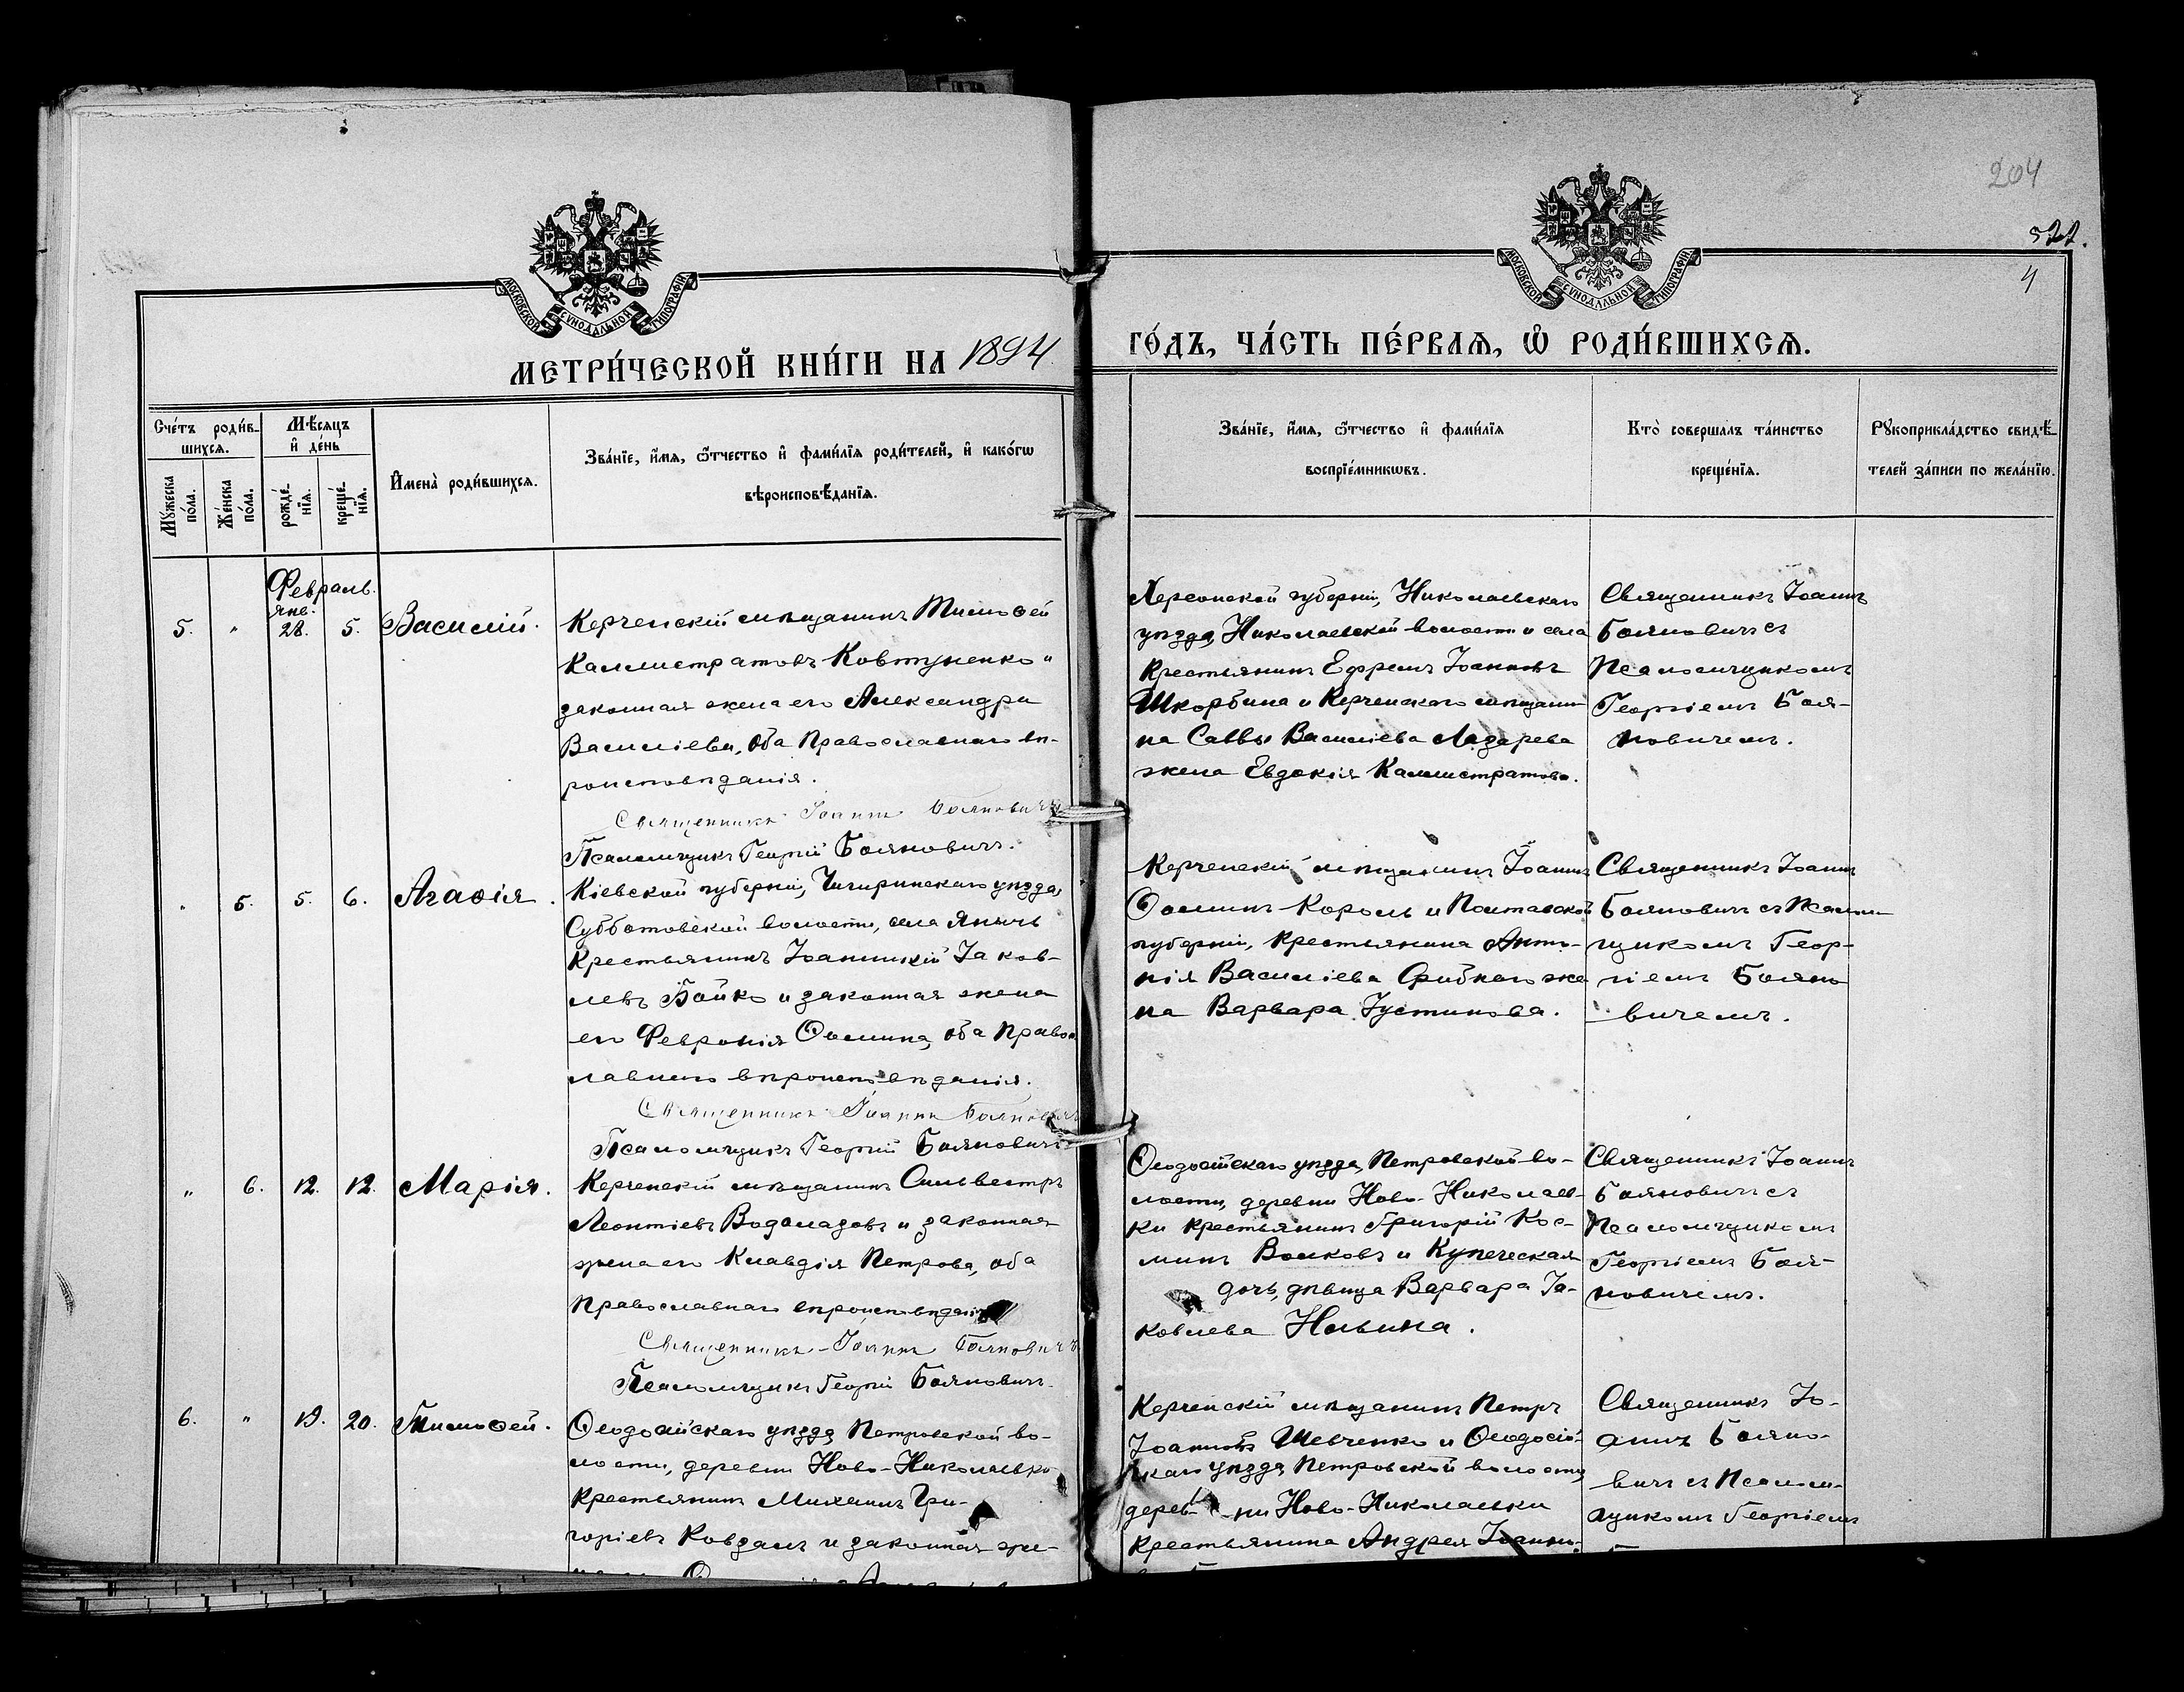 204
522.
4
МОСКОВСКОЙ СѴНОДАЛЬНОЙ ТИПОГРАФІИ
МОСКОВСКОЙ СѴНОДАЛЬНОЙ ТИПОГРАФІИ
МЕТРИ́ЧЕСКОЙ КНИ́ГИ НА 1894
ГО́ДЪ, ЧА́СТЬ ПЕ́РВАЯ, Ѽ РОДИ́ВШИХСЯ.
Сче́тъ роди́в-
шихся.
Мѣ́сяцъ
и҆ де́нь
Мꙋ́жеска
по́ла.
Же́нска
по́ла.
рожде́-
нїя.
креще́-
нїя.
И҆мена̀ роди́вшихся.
Зва́нїе, и҆́мя, ѻ҆́тчество и҆ фами́лїя роди́телей, и҆ како́гѡ
вѣроисповѣ́данїя.
Зва́нїе, и҆́мя, ѻ҆́тчество и҆ фами́лїя
воспрїе́мникѡвъ.
Кто̀ соверша́лъ та́инство
креще́нїя.
Рꙋкоприкла́дство свидѣ́-
телей за́писи по жела́нїю.
Февраль.
Янв.
5. " 28. 5. Василій.
Керченскій мѣщанинъ Тимоѳей
Каллистратовъ Ковтуненко и
законная жена его Александра
Василіева, оба Православнаго вѣ-
роисповѣданія.
Священникъ Іоаннъ Бояновичъ
Псаломщикъ Георгій Бояновичъ.
Херсонской губерніи, Николаевскаго
уѣзда, Николаевской волости и села
Крестьянинъ Ефремъ Іоанновъ
Шкорбина и Керченскаго мѣщани-
на Саввы Василіева Лазарева
жена Евдокія Каллистратова.
Священникъ Іоаннъ
Бояновичъ съ
Псаломщикомъ
Георгіемъ Боя-
новичемъ.
" 5. 5. 6. Агаѳія.
Кіевской губерніи, Чигиринскаго уѣзда,
Субботовской волости, села Янычъ
Крестьянинъ Іоанникій Іаков-
левъ Бойко и законная жена
его Февронія Ѳомина, оба Правос-
лавнаго вѣроисповѣданія.
Священникъ Іоаннъ Бояновичъ
Псаломщикъ Георгій Бояновичъ
Керченскій мѣщанинъ Іоаннъ
Ѳоминъ Король и Полтавской
губерніи, Крестьянина Анто-
нія Василіева жe
на Варвара Іустинова.
Священникъ Іоаннъ
Бояновичъ съ Псалом-
щикомъ Геор-
гіемъ Бояно
вичемъ.
" 6. 12. 12. Марія.
Керченскій мѣщанинъ Сильвестръ
Леонтіевъ Водолазовъ и законная
жена его Клавдія Петрова, оба
Православнаго вѣроисповѣданія
Священникъ Іоаннъ Бояновичъ
Псаломщикъ Георгій Бояновичъ.
Ѳеодосійскаго уѣзда, Петровской во-
лости, деревни Ново-Николаев-
ки Крестьянинъ Григорій Кос-
минъ Волковъ и Купеческая
дочь, дѣвица Варвара Іа-
ковлева Ильина.
Священникъ Іоаннъ
Бояновичъ съ
Псаломщикомъ
Георгіемъ Боя-
новичемъ.
6. " 19. 20. Тимоѳей.
Ѳеодосійскаго уѣзда, Петровской во-
лости, деревни Ново-Николаевки
Крестьянинъ Михаилъ Гри-
горіевъ Ковзалъ и законная же-
Керченскій мѣщанинъ Петръ
Іоанновъ Шевченко и Ѳеодосій-
скаго уѣзда, Петровской волости,
дерев-ни Ново-Николаевки
Крестьянина Андрея Іоанно-
Священникъ Іо-
аннъ Бояно-
вичъ съ Псалом-
щикомъ Георгіемъ